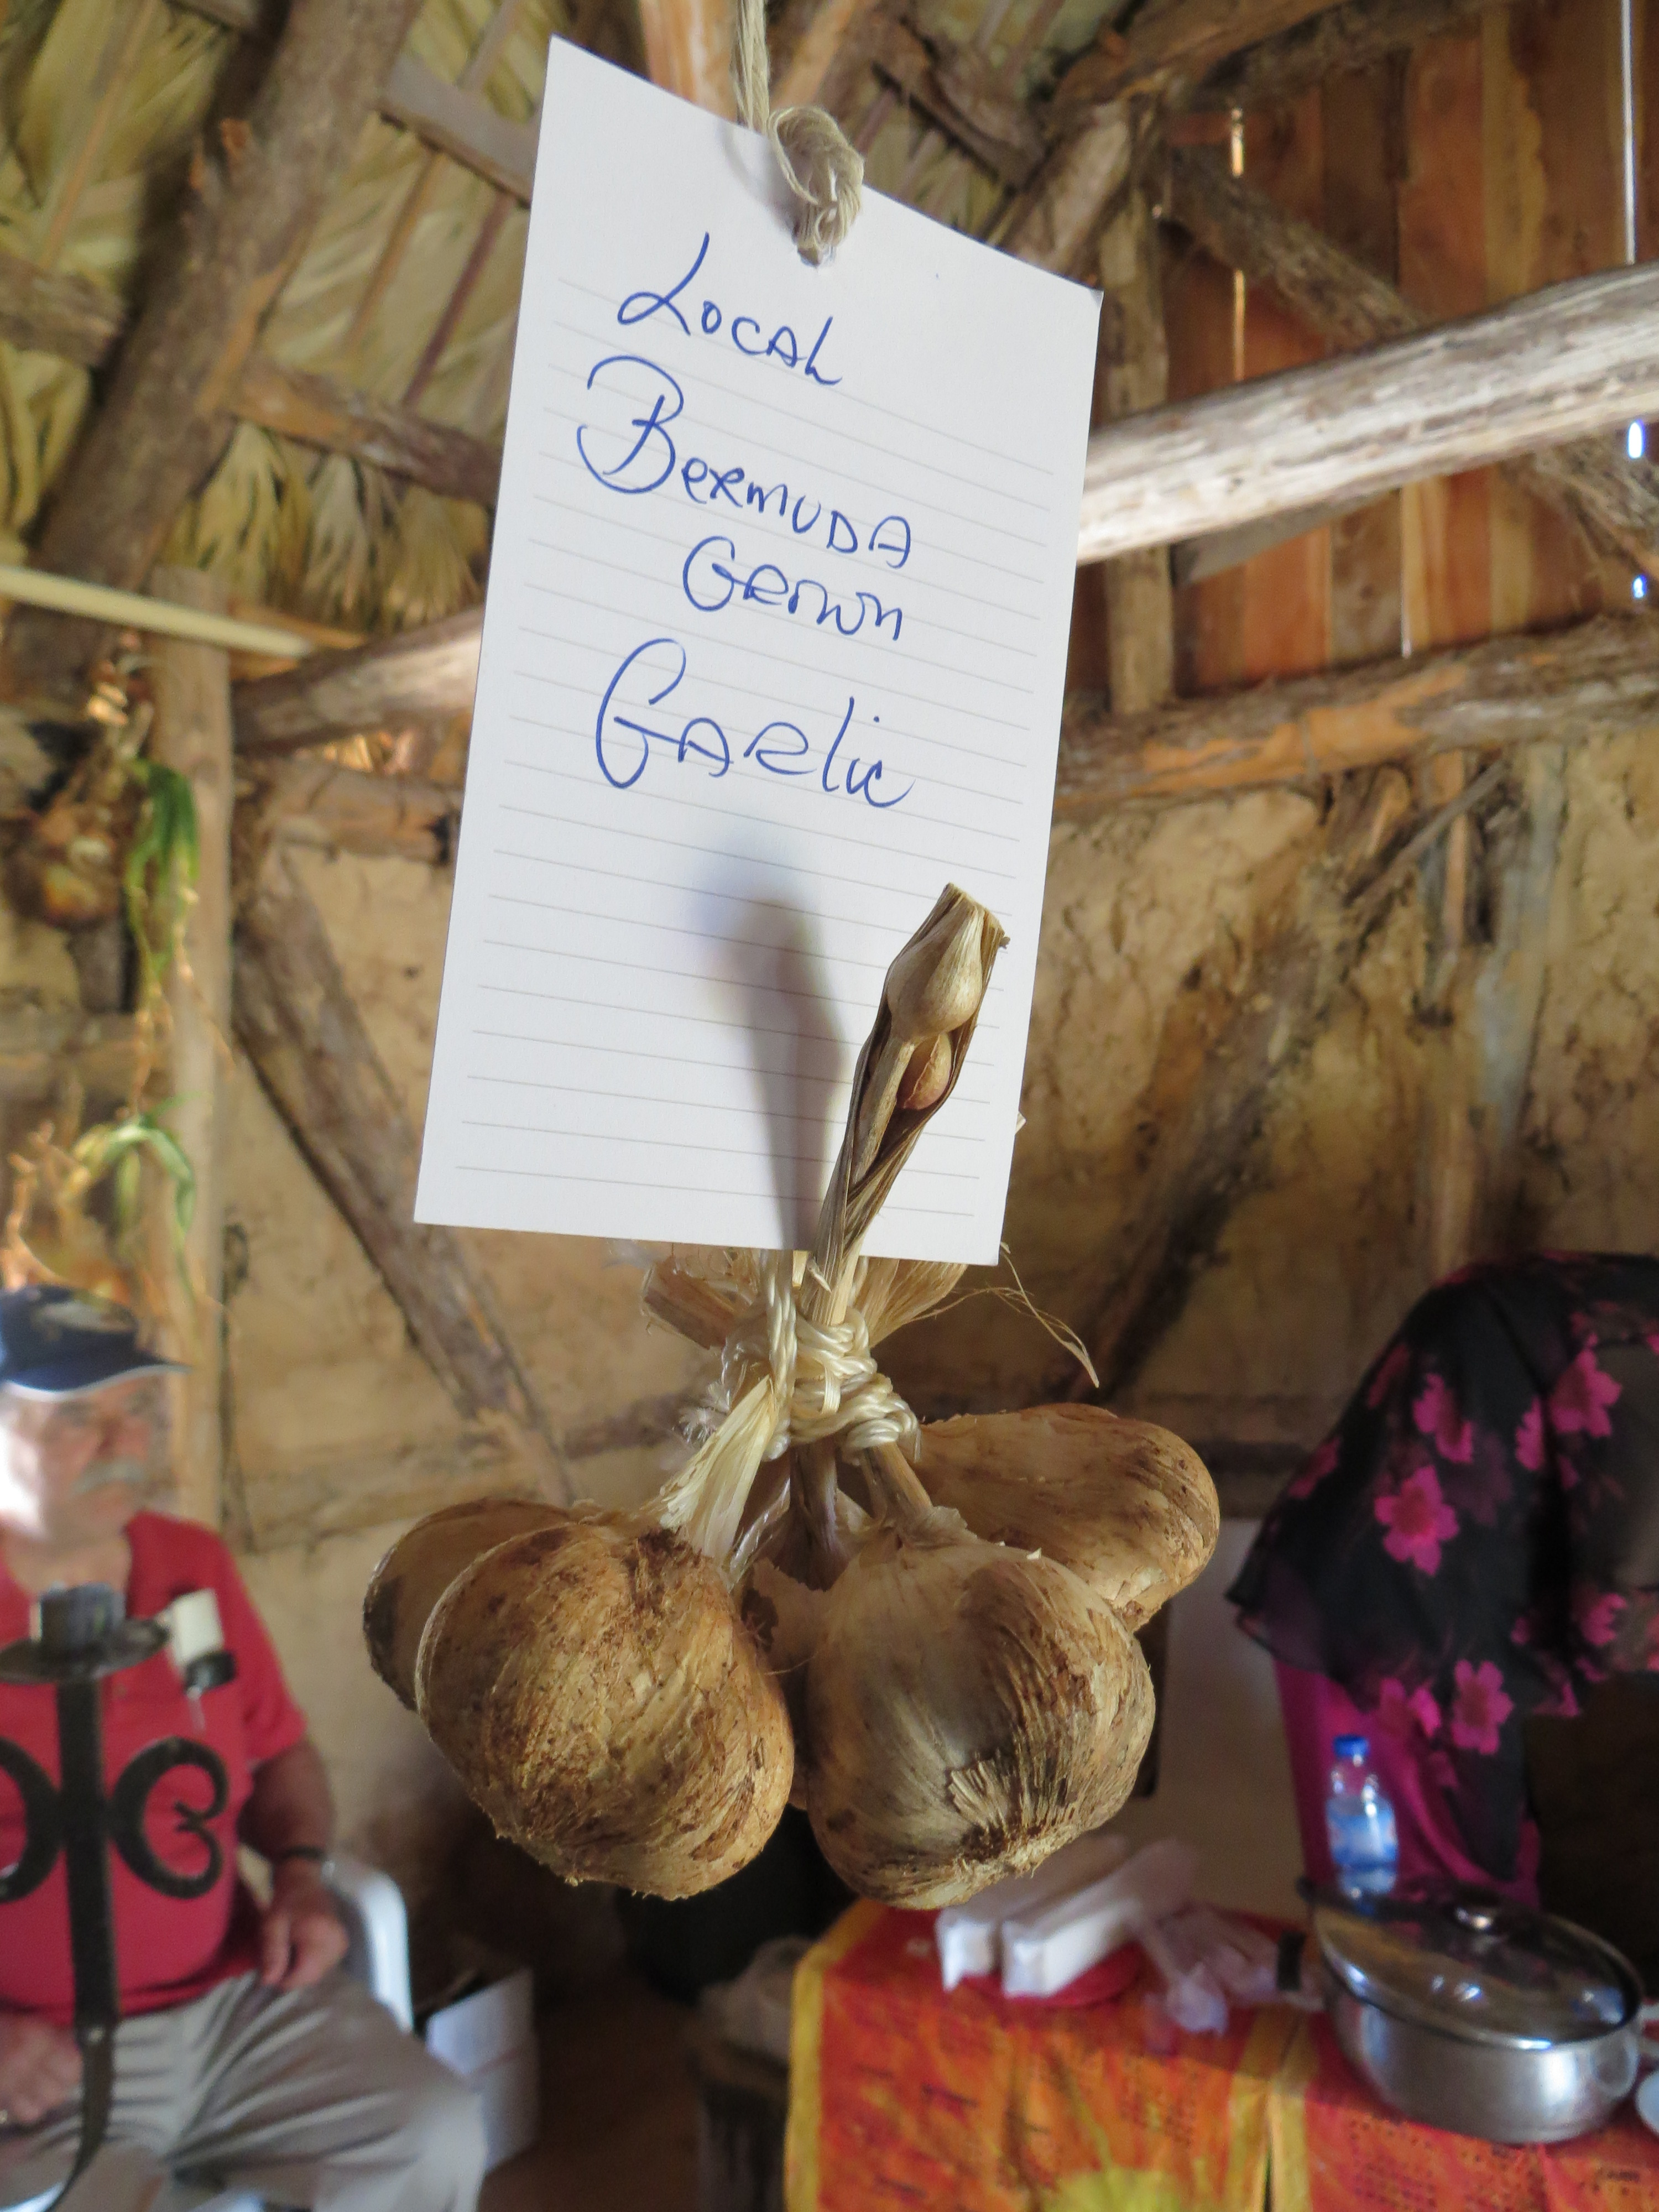 Local
BeRMUDA
GROWN
GARlic